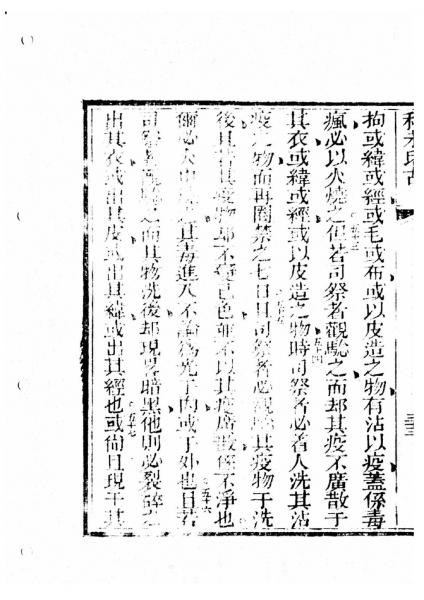 拘或緯或經或毛或布或以皮造之物有沾以疫蓋係毒
瘋必以火燒之五十三但若司祭者觀驗之而却其疫不廣散于
其衣或緯或經或以皮造之物時五十四司祭者必着人洗其沾
疫之物而再圈禁之七日五十五且司祭者必觀驗其疫物于洗
後且若其疫物却不變己色並不以其疫廣散係不淨也
爾必火燒之其毒進入不論為光于內或于外也五十六且若
司祭者觀驗之而其物洗後却現畧暗黑他則必裂碎之
出其衣或出其皮或出其緯或出其經也五十七或尚且現于其